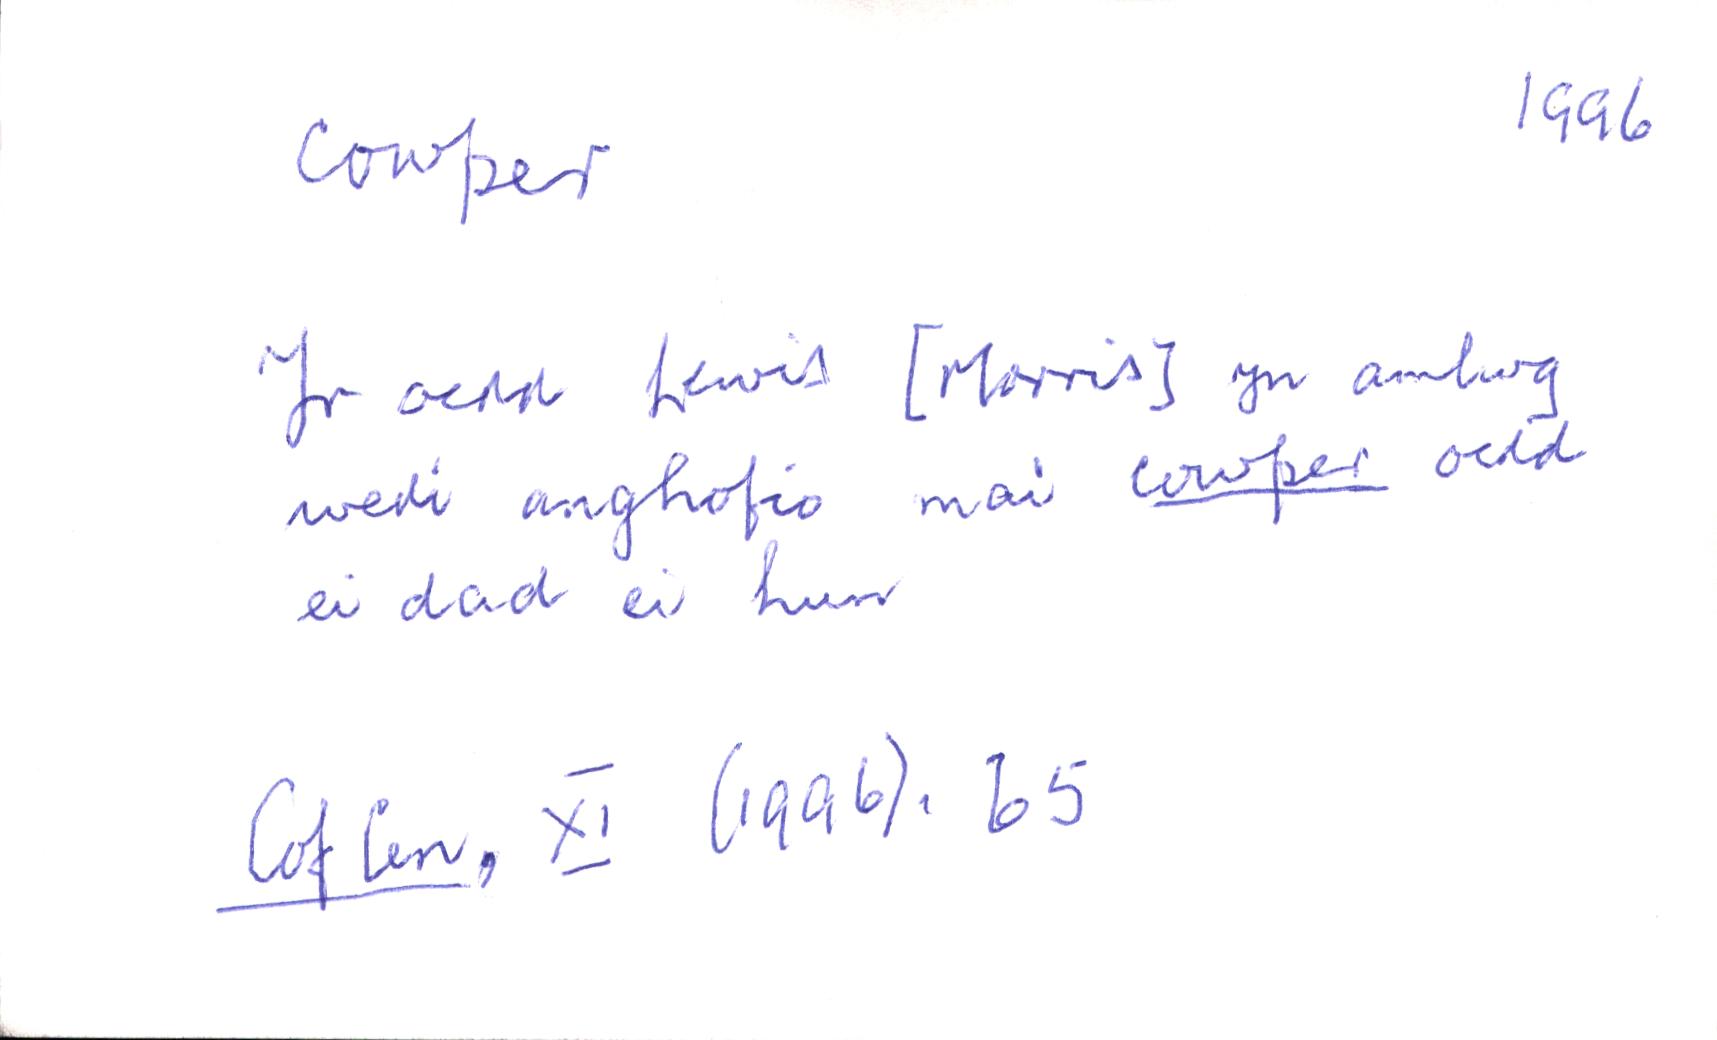 cowper 1996
Yr oedd Lewis [Morris] yn amlwg
wedi anghofio mai cowper oedd
ei dad ei hun
Cof Cen, XI (1996). 65